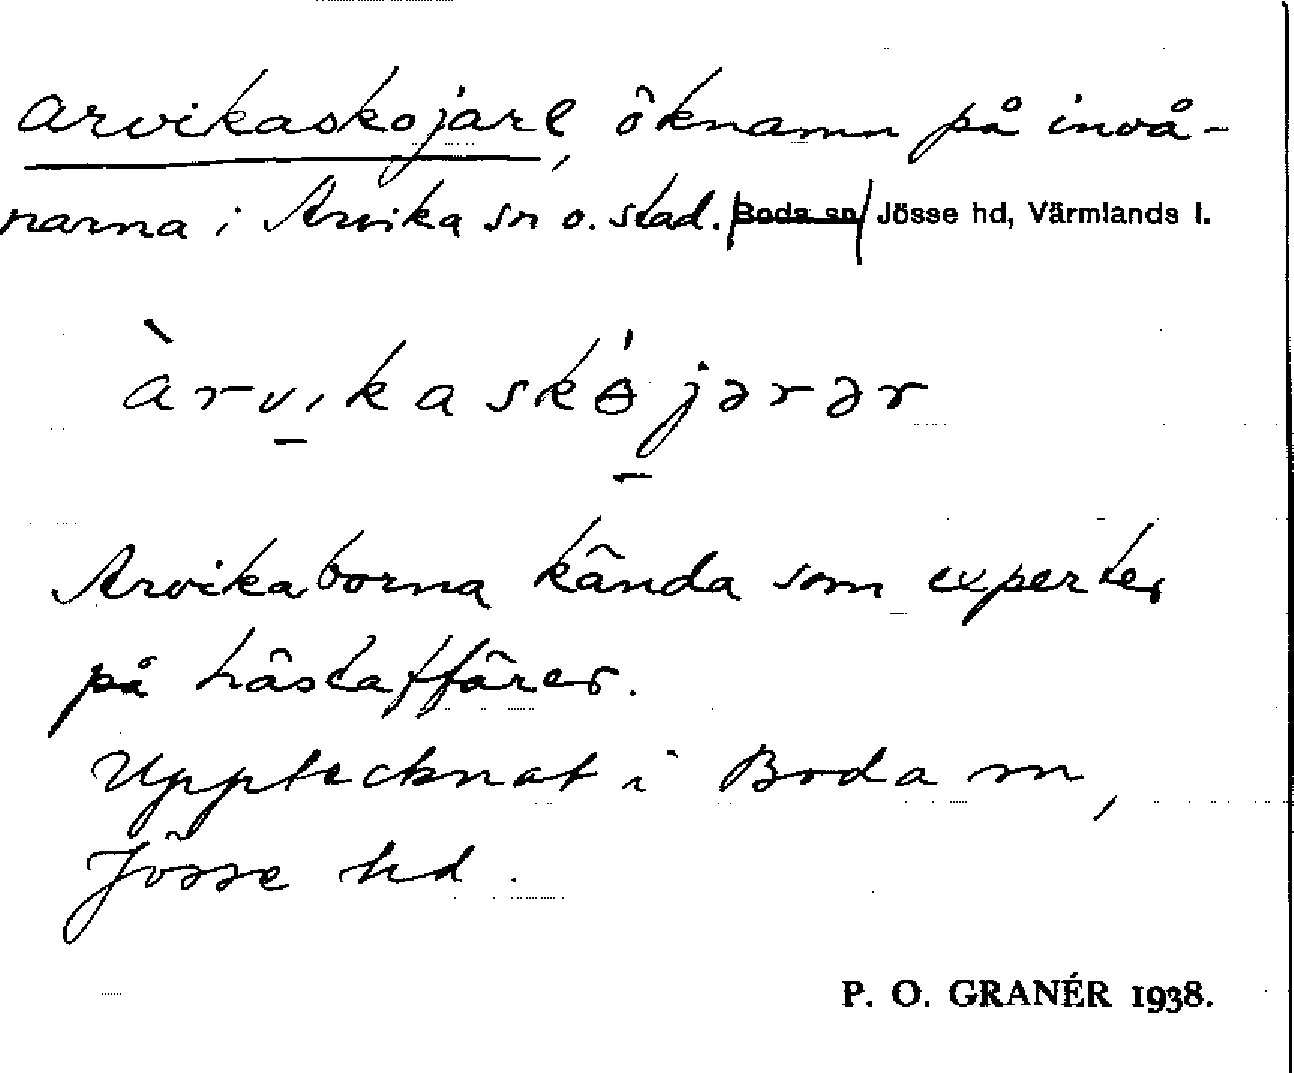 arvikaskojare, öknamn på invå-
narna i Arvika sn o. stad. Boda sn Jösse hd, Värmlands l.
àrvikaskójərər
Arvikaborna kända som experter
på hästaffärer.
Upptecknat i Boda sn,
Jösse hd.
P. O. GRANÉR 1938.